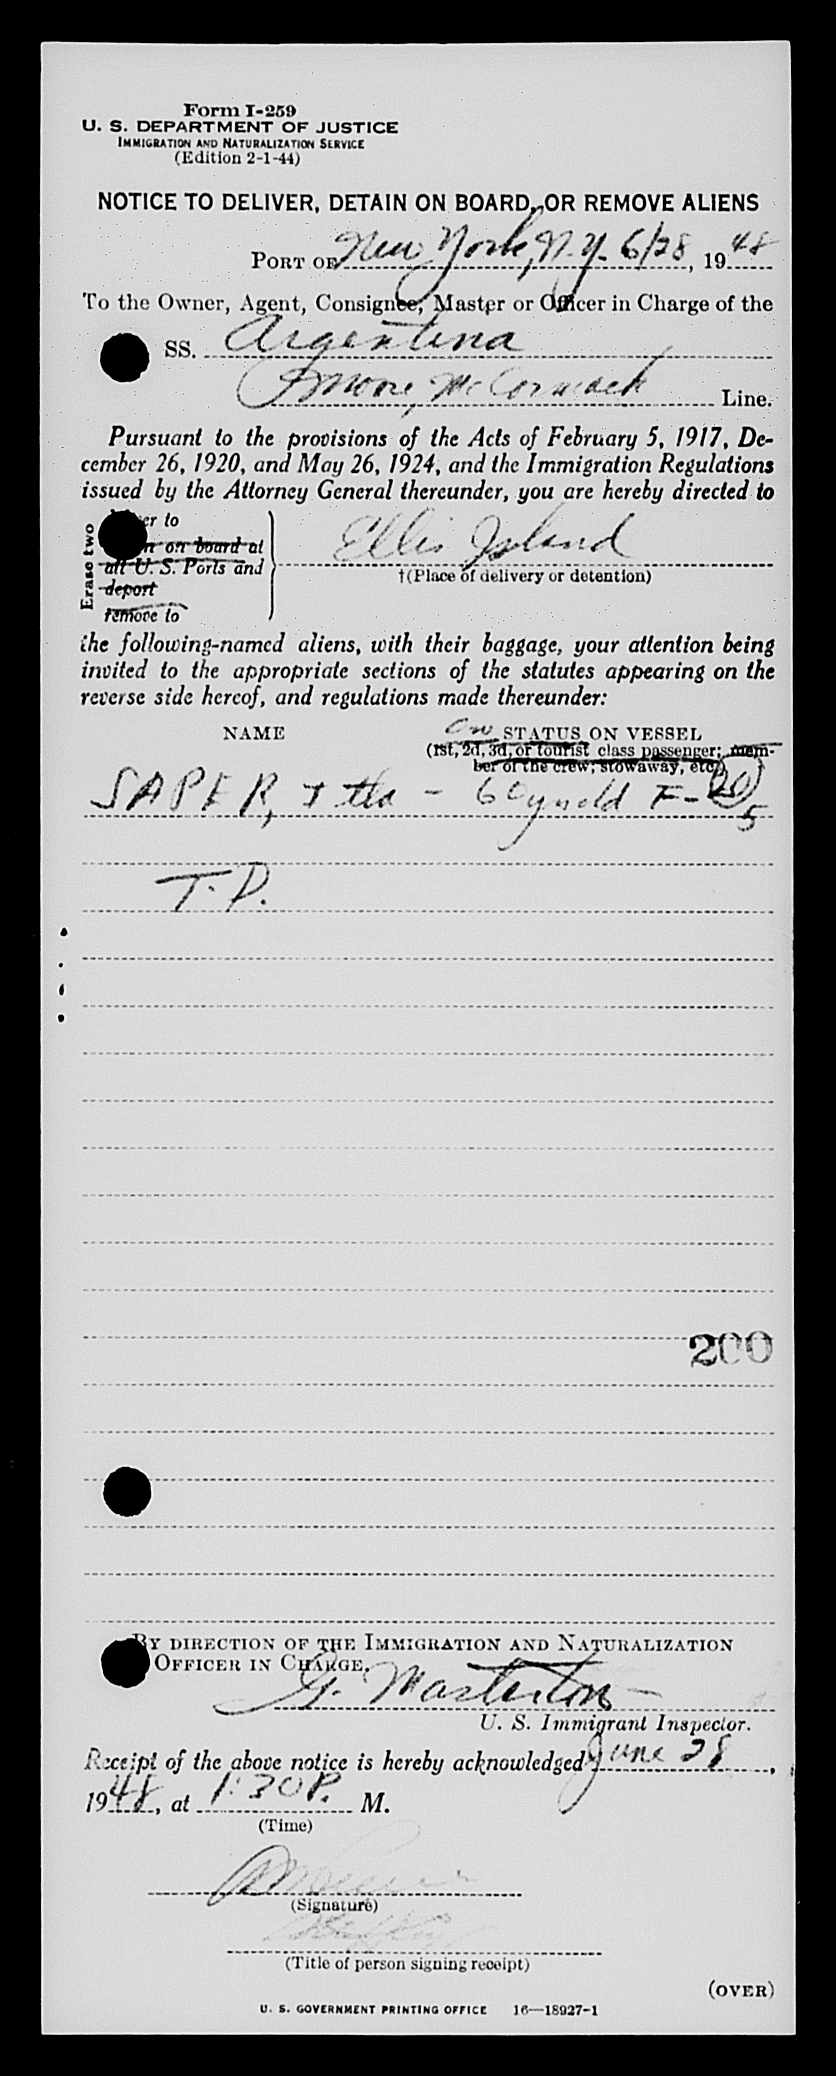 Form I-259
U. S. DEPARTMENT OF JUSTICE
IMMIGRATION AND NATURALIZATION SERVICE
(Edition 2-1-44)
NOTICE TO DELIVER, DETAIN ON BOARD, OR REMOVE ALIENS
PORT OF New York, N.Y. 6/28, 1948
To the Owner, Agent, Consignee, Master or Officer in Charge of the
SS. Argentina
Moore, McCormack Line.
Pursuant to the provisions of the Acts of February 5, 1917, De-
cember 26, 1920, and May 26, 1924, and the Immigration Regulations
issued by the Attorney General thereunder, you are hereby directed to
Erase two
er to
n on board at
all U. S. Ports and
deport
remove to
Ellis Island
†(Place of delivery or detention)
the following-named aliens, with their baggage, your attention being
invited to the appropriate sections of the statutes appearing on the
reverse side hereof, and regulations made thereunder:
NAME
STATUS ON VESSEL
(1st, 2d, 3d, or tourist class passenger; mem-
ber of the crew, stowaway, etc.)
SAPER, Itta - 60 yrs old F- 20
5
T. D.
200
BY DIRECTION OF THE IMMIGRATION AND NATURALIZATION
OFFICER IN CHARGE,
G. Masterton
U. S. Immigrant Inspector.
Receipt of the above notice is hereby acknowledged June 28,
1948, at 1:30 P. M.
(Time)
(Signature)
(Title of person signing receipt)
(OVER)
U. S. GOVERNMENT PRINTING OFFICE 16—18927-1